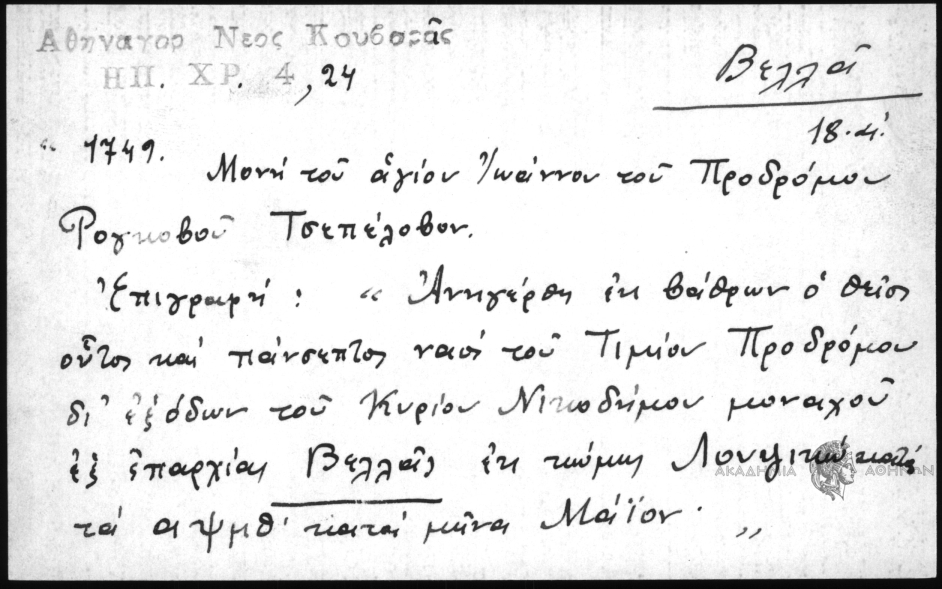 Αθηναγορ Νεος Κουβαρᾶς
ΗΠ. ΧΡ. 4, 24
Βελλᾶ
18.α'.
" 1749. Μονή τοῦ ἁγίου Ἰωάννου τοῦ Προδρόμου
Ρογκοβοῦ Τσεπέλοβον.
Ἐπιγραφή : " Ἀνηγέρθη ἐκ βάθρων ὁ θεῖος
οὗτος καί πάνσεπτος ναός τοῦ Τιμίου Προδρόμου
δι' ἐξόδων τοῦ Κυρίου Νικοδήμου μοναχοῦ
ἐξ ἐπαρχίας Βελλᾶς ἐκ κώμης κατά
τά αψμθ' κατά μῆνα Μάϊον. "
ΑΚΑΔΗΜΙΑ ΑΘΗΝΩΝ